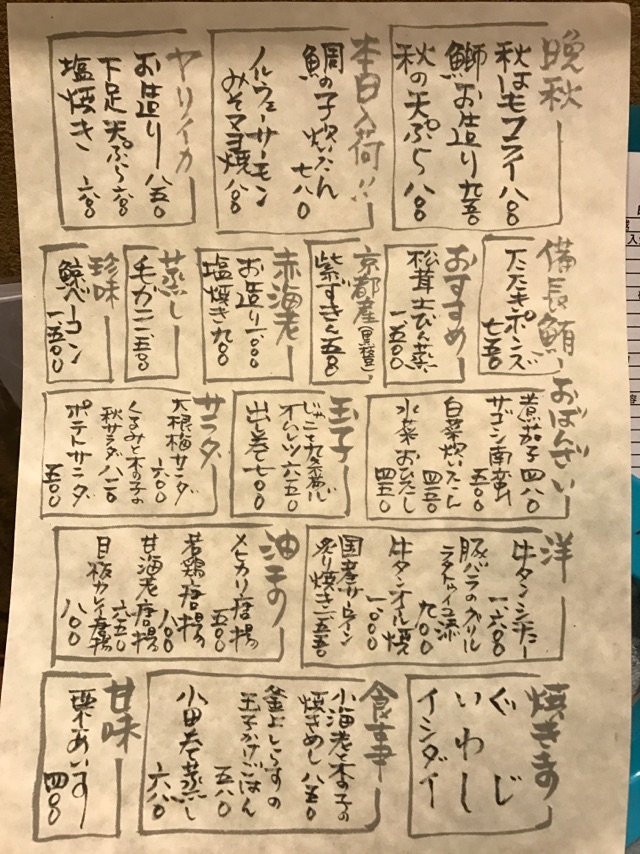 晩秋
秋はもフライ 八〇〇
鰤お造り 九五〇
秋の天ぷら 八〇〇
本日入荷!!
鯛の子炊いたん 七八〇
ノルウェーサーモン
みそマヨ焼 八〇〇
ヤリイカ
お造り 八五〇
下足天ぷら 六〇〇
塩焼き 六〇〇
備長鮪
たたきポンズ 七五〇
おすすめ
松茸土びん蒸 一、五〇〇
京都産(黒豊)
紫ずきん 五五〇
赤海老
お造り 一、〇〇〇
塩焼き 九〇〇
蒸し
毛ガニ 二、五〇〇
珍味
鯨ベーコン 一、五〇〇
おばんざい
煮茄子 四八〇
サゴシ南蛮 五〇〇
白菜炊いたん 四五〇
水菜おひたし 四五〇
玉子
じゃこと九条ねぎ
オムレツ 六五〇
出し巻 七〇〇
サラダ
大根梅サラダ 六〇〇
くるみと木の子の
秋サラダ 八二〇
ポテトサラダ 五〇〇
洋
牛タンシチュー 一、六〇〇
豚バラのグリル
ラタトゥイユ添 九〇〇
牛タンオイル焼 一、〇〇〇
国産サーロイン
炙り焼き 二、五五〇
油もの
メヒカリ唐揚 五〇〇
若鶏唐揚 八〇〇
甘海老唐揚 六五〇
目板カレイ唐揚 八〇〇
焼きもの
ぐじ
いわし
イシダイ
食事
小海老と木の子の
焼きめし 八五〇
釜上しらすの
玉子かけごはん 五八〇
小田巻蒸し 六八〇
甘味
栗あいす 四〇〇